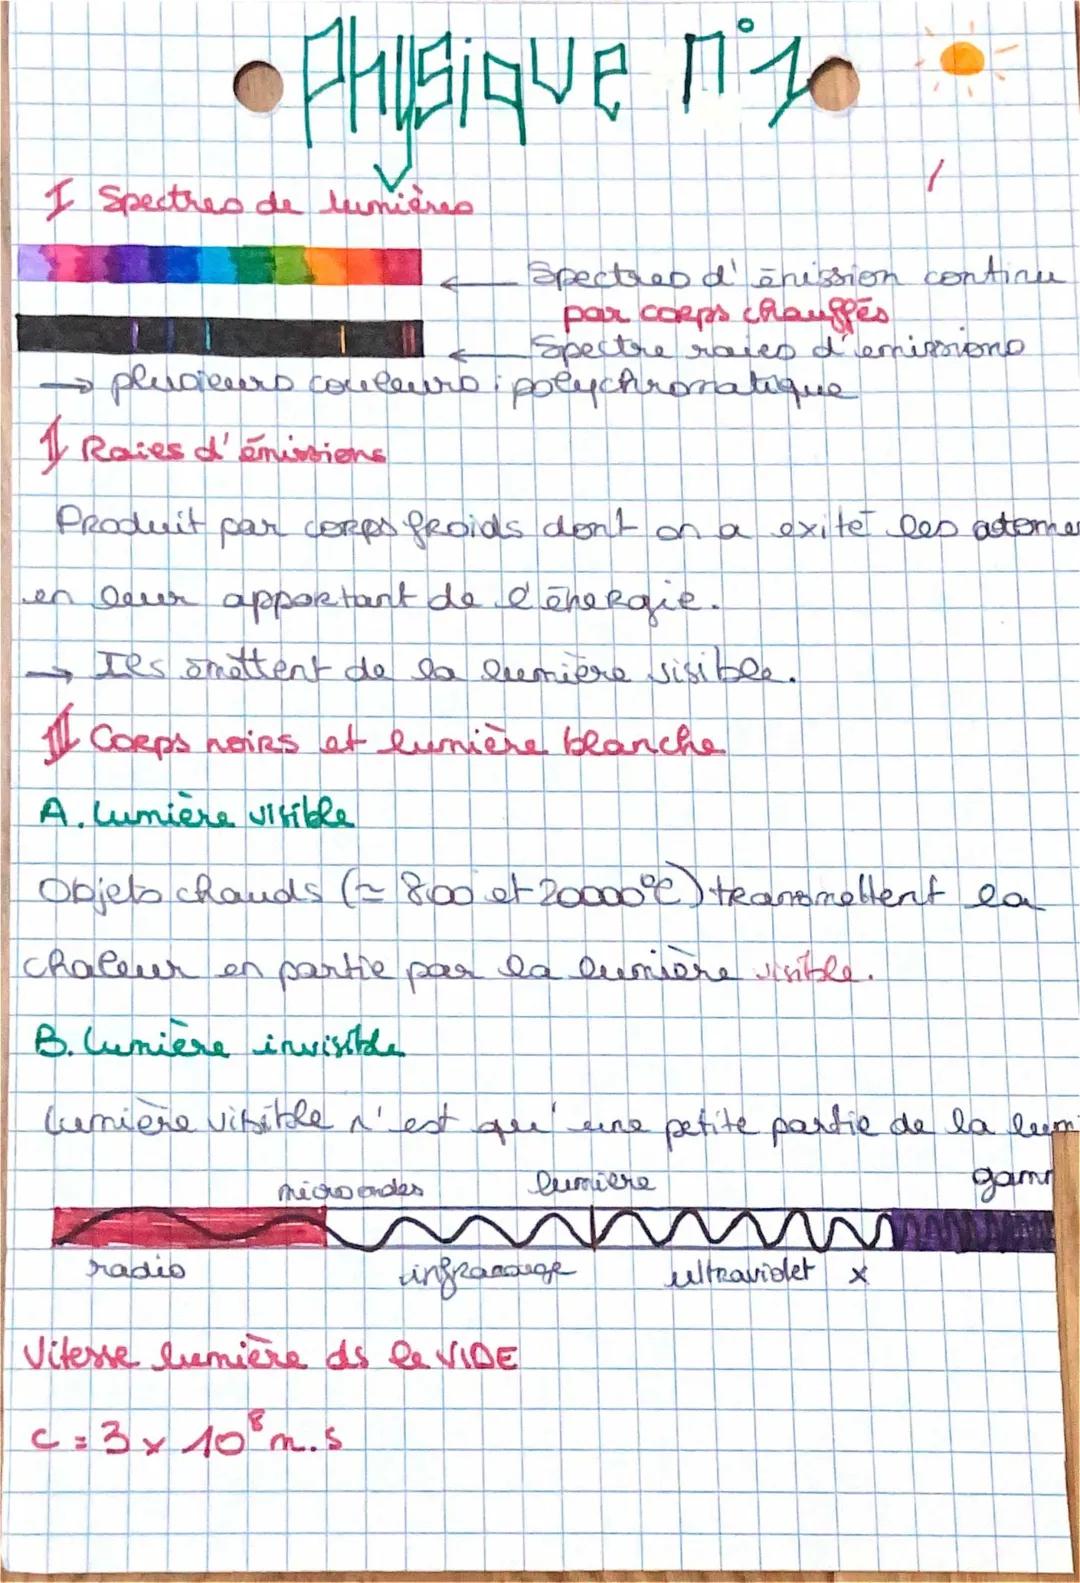 Physique n°1
I Spectres de lumières
Spectres d'émission continu
par corps chauffés
Spectre raies d'emissions
→ plusieurs couleurs : polychromatique
II Raies d'émissions
Produit par corps froids dont on a exité les atome
en leur apportant de l'énergie.
→ Ils émettent de la lumière visible.
III Corps noirs et lumière blanche
A. Lumière visible
Objets chauds (≃ 800 et 20000°C) transmettent la
chaleur en partie par la lumière visible.
B. Lumière invisible
Lumière visible n'est qu'une petite partie de la lum
microondes lumière gam
radio infrarouge ultraviolet x
Vitesse lumière ds le VIDE
c = 3 x 10⁸ m.s